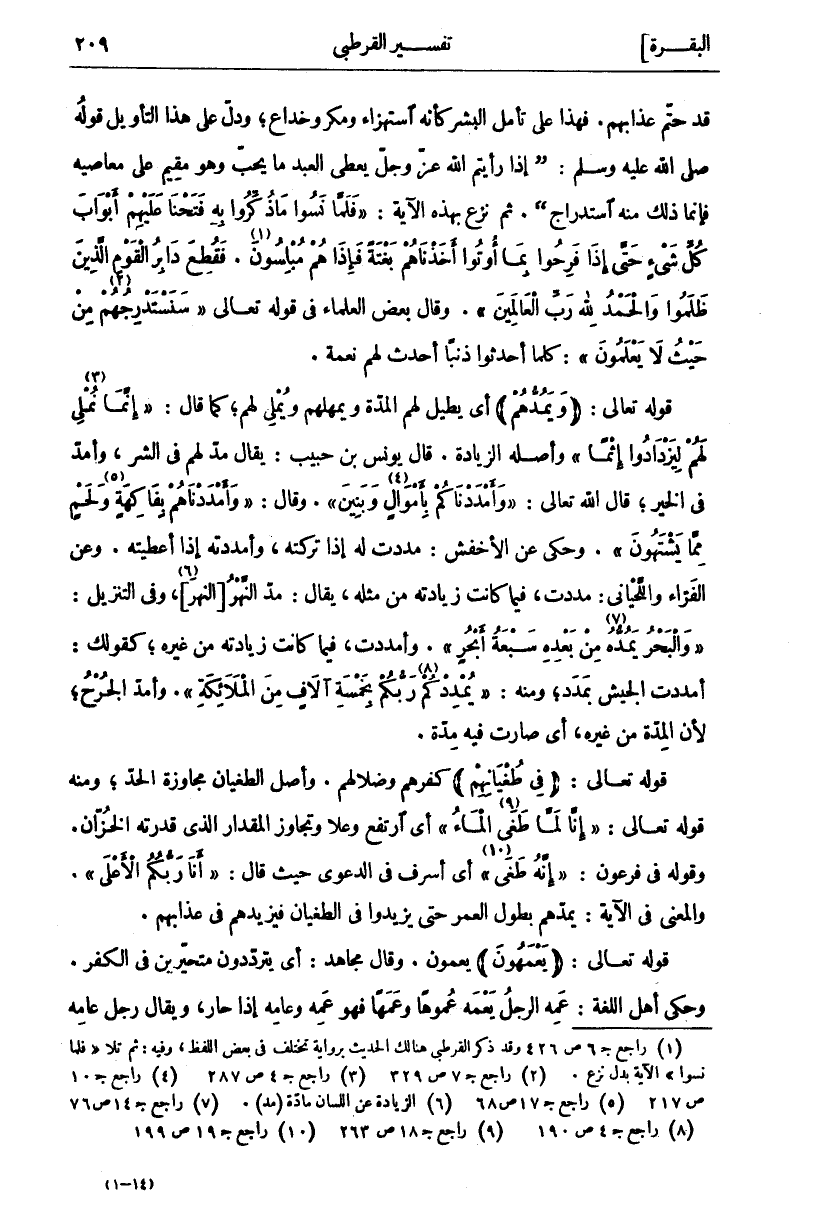 البقـــرة] تفســـير القرطبى ٢٠٩
قد حتّم عذابهم. فهذا على تأمل البشر كأنه ٱستهزاء ومكر وخداع؛ ودلّ على هذا التأويل قولُه
صلى الله عليه وسلم : " إذا رأيتم الله عزّ وجلّ يعطى العبد ما يحبّ وهو مقيم على معاصيه
فإنما ذلك منه ٱستدراج" . ثم نزع بهذه الآية : «فَلَمَّا نَسُوا مَا ذُكِّرُوا بِهِ فَتَحْنَا عَلَيْهِمْ أَبْوَابَ
كُلِّ شَىْءٍ حَتَّى إِذَا فَرِحُوا بِمَـا أُوتُوا أَخَذْنَاهُمْ بَغْتَةً فَإِذَا هُمْ مُبْلِسُونَ (١) . فَقُطِعَ دَابِرُ الْقَوْمِ الَّذِينَ
ظَلَمُوا وَالْحَمْدُ لِلهِ رَبِّ الْعَالَمِينَ » . وقال بعض العلماء فى قوله تعـالى (٢) « سَنَسْتَدْرِجُهُمْ مِنْ
حَيْثُ لَا يَعْلَمُونَ » : كلما أحدثوا ذنبًا أحدث لهم نعمة .
قوله تعالى : ﴿ وَيَمُدُّهُمْ ﴾ أى يطيل لهم المدّة ويمهلهم ويُمْلِى لهم؛ كما قال : (٣) « إِنَّمَـا نُمْلِى
لَهُمْ لِيَزْدَادُوا إِثْمًـا » وأصـله الزيادة . قال يونس بن حبيب : يقال مدّ لهم فى الشر ، وأمدّ
فى الخير ؛ قال الله تعالى : «وَأَمْدَدْنَاكُمْ بِأَمْوَالٍ (٤) وَبَنِينَ» . وقال : « وَأَمْدَدْنَاهُمْ بِفَاكِهَةٍ (٥) وَلَحْمٍ
مِمَّا يَشْتَهُونَ » . وحكى عن الأخفش : مددت له إذا تركته ، وأمددته إذا أعطيته . وعن
الفَرّاء واللِّحْيانى : مددت، فيما كانت زيادته من مثله ، يقال : مدّ النَّهْرُ [النهرَ] (٦)، وفى التنزيل :
« وَالْبَحْرُ يَمُدُّهُ مِنْ بَعْدِهِ سَـبْعَةُ أَبْحُرٍ (٧) » . وأمددت، فيما كانت زيادته من غيره ؛ كقولك :
أمددت الجيش بمَدَد؛ ومنه : « يُمْدِدْكُمْ رَبُّكُمْ بِخَمْسَةِ (٨) آلَافٍ مِنَ الْمَلَائِكَةِ ». وأمدّ الجُرْحُ؛
لأن المِدّة من غيره، أى صارت فيه مِدّة .
قوله تعـالى : ﴿ فِى طُغْيَانِهِمْ ﴾ كفرهم وضلالهم . وأصل الطغيان مجاوزة الحدّ ؛ ومنه
قوله تعـالى : « إِنَّا لَمَّـا طَغَى (٩) الْمَـاءُ » أى ٱرتفع وعلا وتجاوز المقدار الذى قدرته الخُزّان.
وقوله فى فرعون : « إِنَّهُ طَغَى (١٠) » أى أسرف فى الدعوى حيث قال : « أَنَا رَبُّكُمُ الْأَعْلَى » .
والمعنى فى الآية : يمدّهم بطول العمر حتى يزيدوا فى الطغيان فيزيدهم فى عذابهم .
قوله تعـالى : ﴿ يَعْمَهُونَ ﴾ يعمون . وقال مجاهد : أى يتردّدون متحيّرين فى الكفر .
وحكى أهل اللغة : عَمِه الرجلُ يَعْمَه عُموهًا وعَمَهًا فهو عَمِه وعامِه إذا حار، ويقال رجل عامِه
(١) راجع جـ ٦ ص ٤٢٦ وقد ذكر القرطبي هنالك الحديث برواية تختلف فى بعض اللفظ ، وفيه : ثم تلا « فلما
نسوا » الآية بدل نزع . (٢) راجع جـ ٧ ص ٣٢٩ (٣) راجع جـ ٤ ص ٢٨٧ (٤) راجع جـ ١٠
ص ٢١٧ (٥) راجع جـ ١٧ ص ٦٨ (٦) الزيادة عن اللسان مادّة (مد) . (٧) راجع جـ ١٤ ص ٧٦
(٨) راجع جـ ٤ ص ١٩٠ (٩) راجع جـ ١٨ ص ٢٦٣ (١٠) راجع جـ ١٩ ص ١٩٩
(١-١٤)